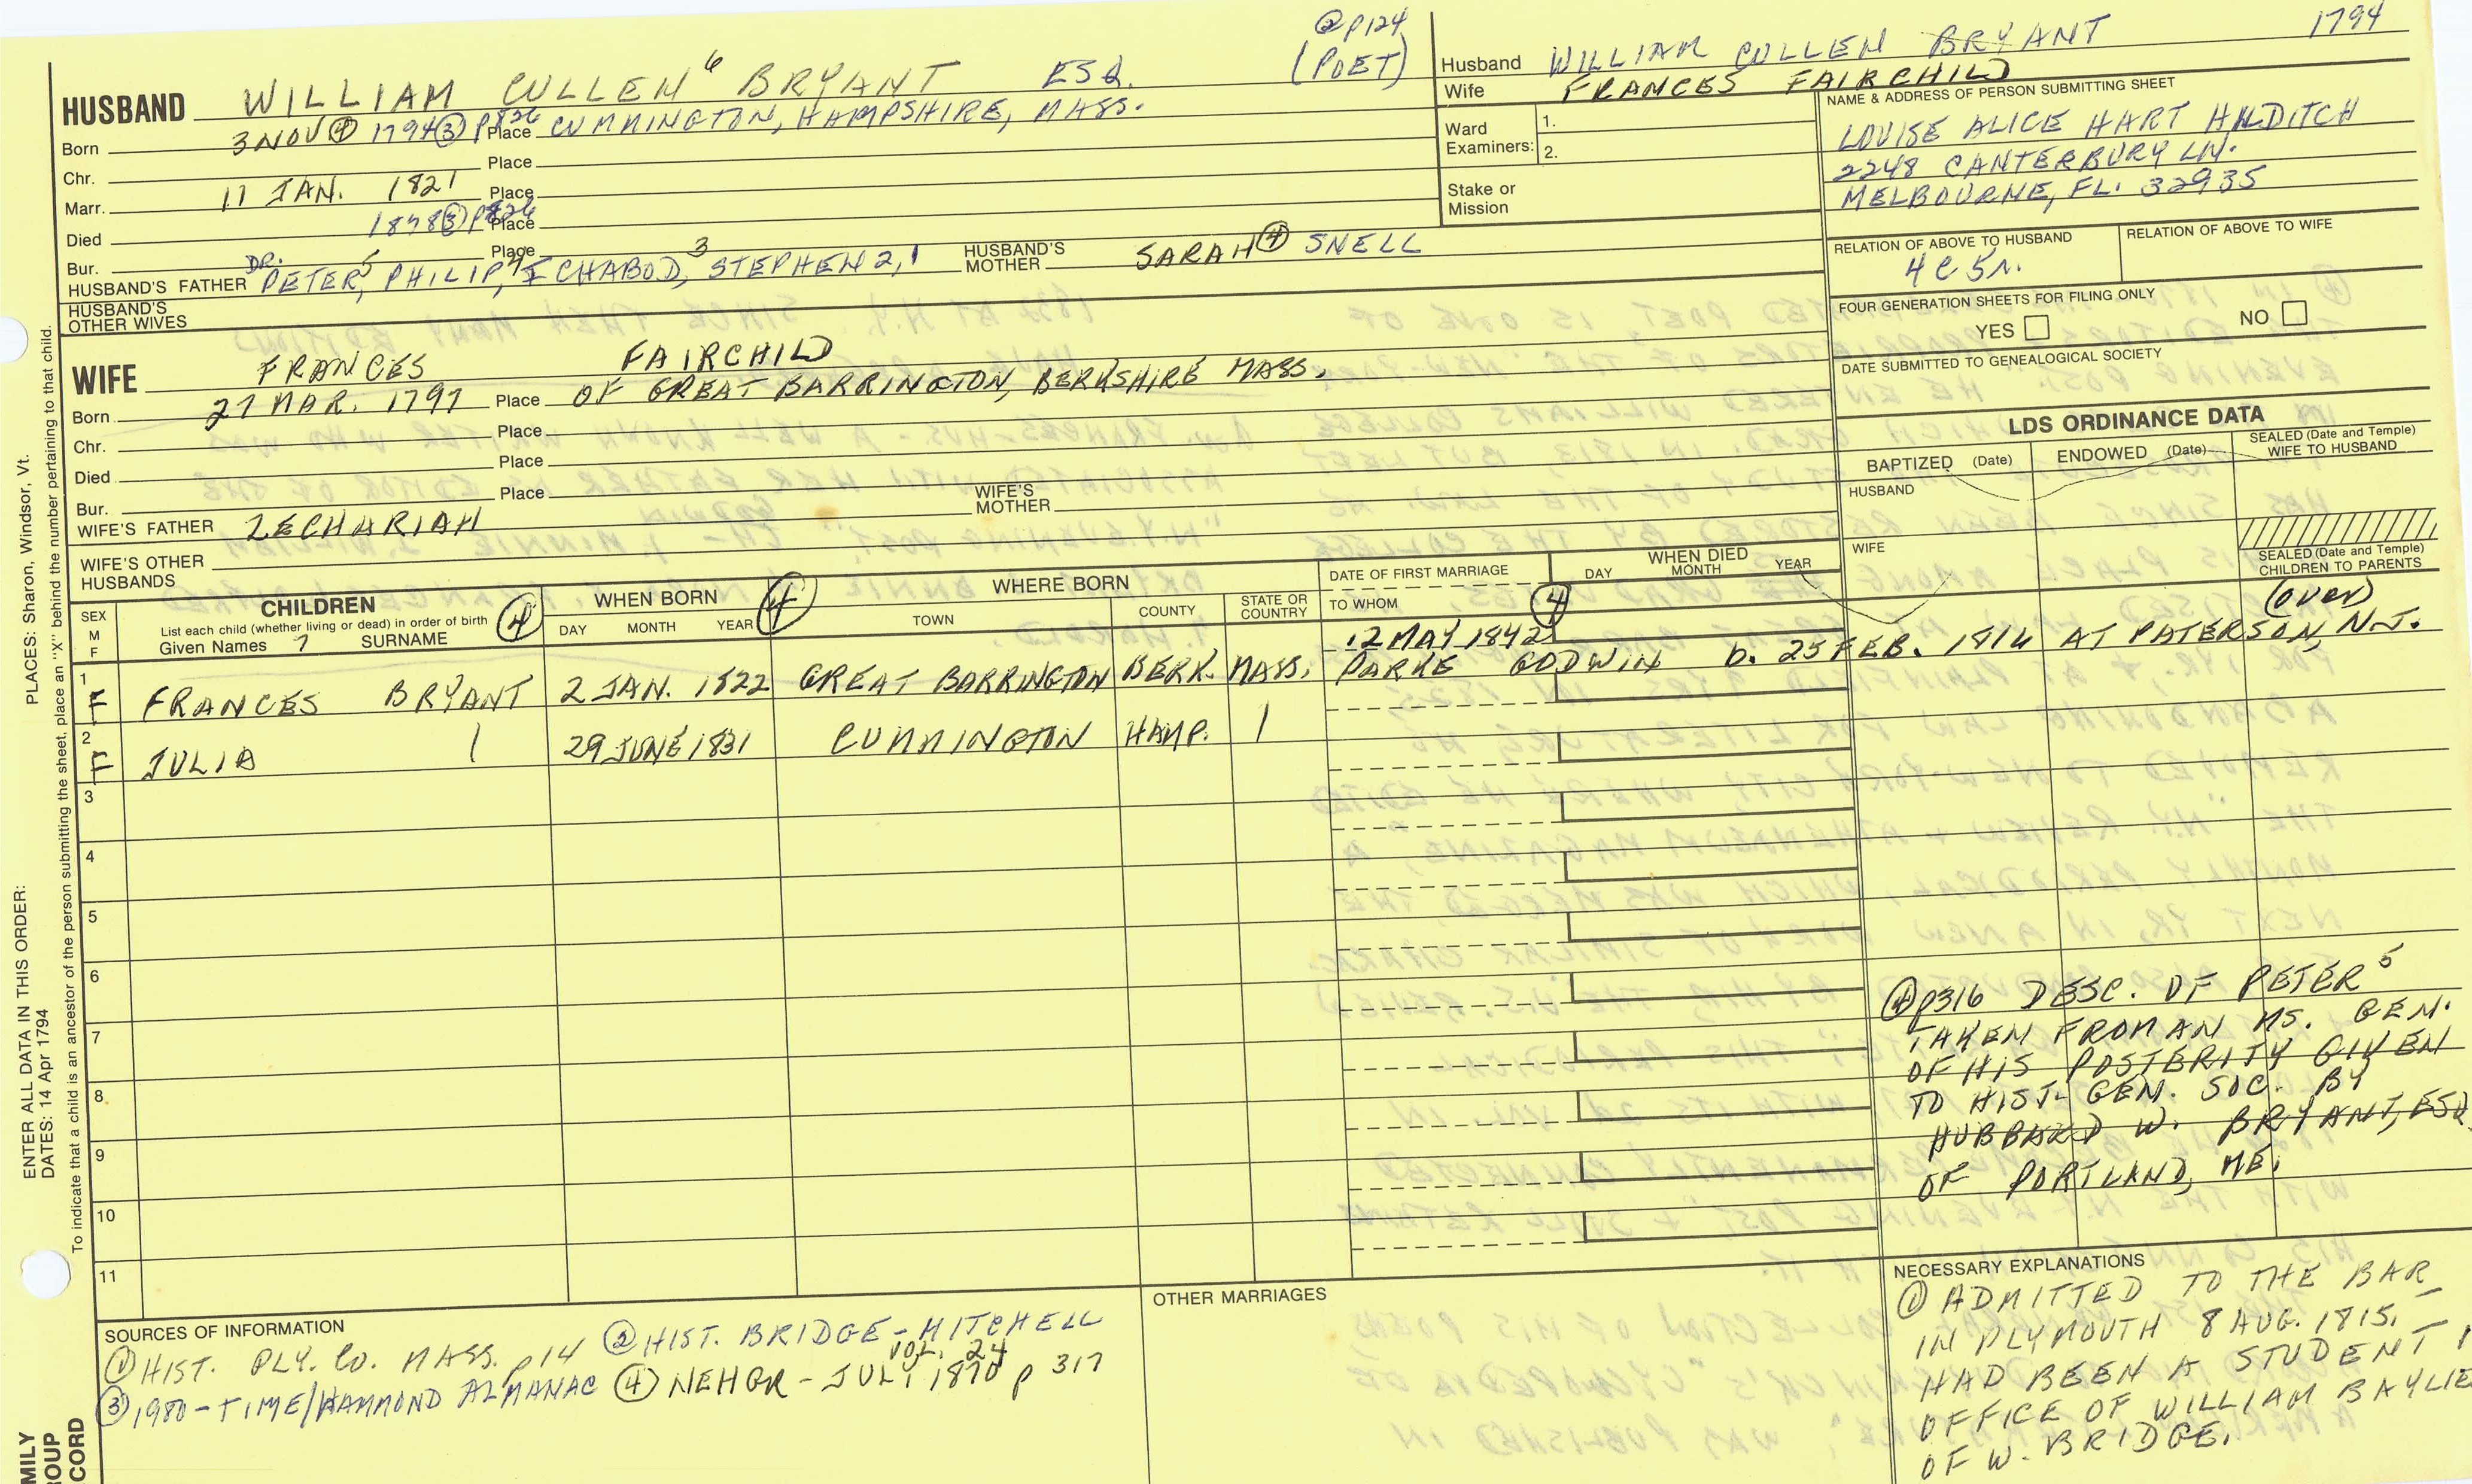 HUSBAND WILLIAM CULLEN 6 BRYANT ESQ. ② p124 (POET)
Born 3 NOV ④ 1794 ③ p826 Place CUMMINGTON, HAMPSHIRE, MASS.
Chr. Place
Marr. 11 JAN. 1821 Place
Died 1878 ③ p826 Place
Bur. Place
HUSBAND'S FATHER DR. PETER 5, PHILIP 4, ICHABOD 3, STEPHEN 2, 1 HUSBAND'S MOTHER SARAH ④ SNELL
HUSBAND'S OTHER WIVES
WIFE FRANCES FAIRCHILD
Born 27 MAR. 1797 Place OF GREAT BARRINGTON, BERKSHIRE MASS.
Chr. Place
Died Place
Bur. Place
WIFE'S FATHER ZECHARIAH WIFE'S MOTHER
WIFE'S OTHER HUSBANDS
1794
Husband WILLIAM CULLEN BRYANT
Wife FRANCES FAIRCHILD
Ward Examiners: 1.
2.
Stake or Mission
NAME & ADDRESS OF PERSON SUBMITTING SHEET
LOUISE ALICE HART HILDITCH
2248 CANTERBURY LN.
MELBOURNE, FL. 32935
RELATION OF ABOVE TO HUSBAND RELATION OF ABOVE TO WIFE
4 C 5 r.
FOUR GENERATION SHEETS FOR FILING ONLY
YES NO
DATE SUBMITTED TO GENEALOGICAL SOCIETY
LDS ORDINANCE DATA
BAPTIZED (Date) ENDOWED (Date) SEALED (Date and Temple) WIFE TO HUSBAND
HUSBAND
WIFE
SEALED (Date and Temple) CHILDREN TO PARENTS
(over)
SEX M F
CHILDREN ④
List each child (whether living or dead) in order of birth
Given Names 7 SURNAME
WHEN BORN ④
DAY MONTH YEAR
WHERE BORN
TOWN COUNTY STATE OR COUNTRY
DATE OF FIRST MARRIAGE
TO WHOM ④
WHEN DIED
DAY MONTH YEAR
12 MAY 1842
1 F FRANCES BRYANT 2 JAN. 1822 GREAT BARRINGTON BERK. MASS. PARKE GODWIN b. 25 FEB. 1816 AT PATERSON, N.J.
2 F JULIA 29 JUNE 1831 CUMMINGTON HAMP.
3
4
5
6
7
8
9
10
11
④ p316 DESC. OF PETER 5
TAKEN FROM AN MS. GEN.
OF HIS POSTERITY GIVEN
TO HIST-GEN. SOC. BY
HUBBARD W. BRYANT, ESQ.
OF PORTLAND, ME.
SOURCES OF INFORMATION
① HIST. PLY. CO. MASS. p14 ② HIST. BRIDGE - MITCHELL
③ 1980 - TIME/HAMMOND ALMANAC ④ NEHGR - VOL. 24 JULY 1870 p 317
OTHER MARRIAGES
NECESSARY EXPLANATIONS
① ADMITTED TO THE BAR
IN PLYMOUTH 8 AUG. 1815.
HAD BEEN A STUDENT
OFFICE OF WILLIAM BAYLIE
OF W. BRIDGE.
ENTER ALL DATA IN THIS ORDER:
DATES: 14 Apr 1794 PLACES: Sharon, Windsor, Vt.
To indicate that a child is an ancestor of the person submitting the sheet, place an "X" behind the number pertaining to that child.
MILY
ROUP
CORD